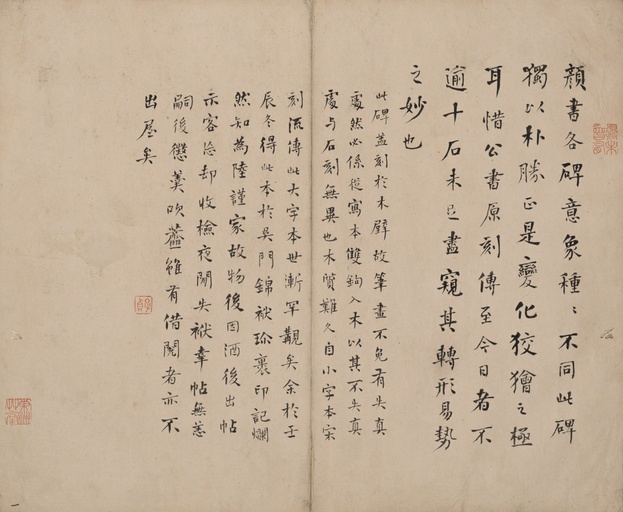 顔書各碑意象種〻不同此碑
獨以朴勝正是變化狡獪之極
耳惜公書原刻傳至今日者不
逾十石未足盡窺其轉形易勢
之妙也
此碑蓋刻於木壁故筆畫不免有失真
處然必係從寫本雙鉤入木以其不失真
處与石刻無異也木質難久自小字本宋
刻流傳此大字本世漸罕覯矣余於壬
辰冬得此本於吳門錦袱珎裹印記爛
然知為陸謹家故物後因酒後出帖
示客忩却收檢夜闌失袱幸帖無恙
嗣後懲羹吹虀雖有借閱者亦不
出屋矣